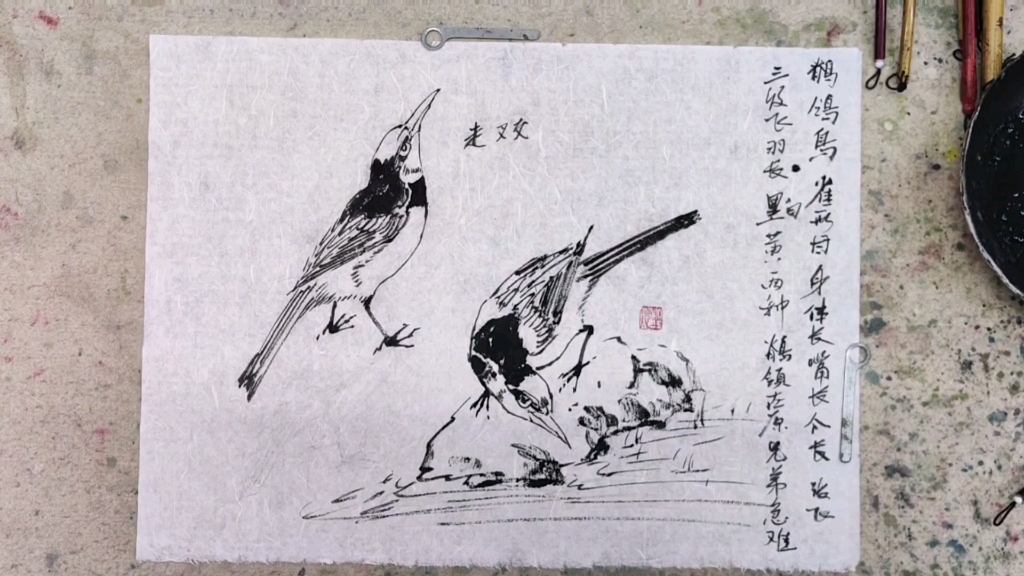 鹡鸰鸟 雀形目 身体长嘴长个长
三级飞羽长 黑白黄两种 鹡鸰在原兄弟急难